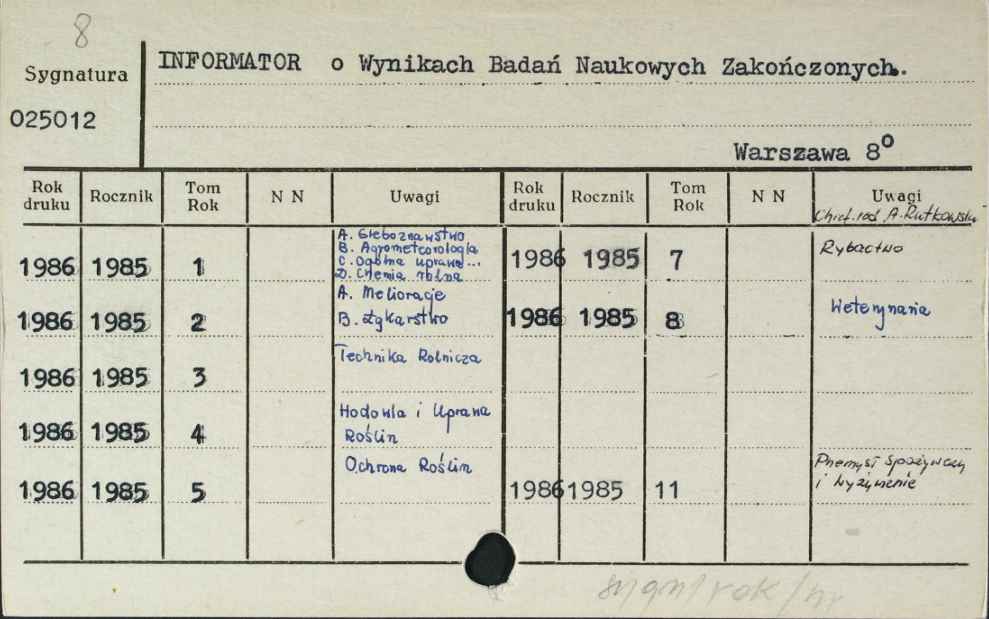 8
Sygnatura
025012
INFORMATOR o Wynikach Badań Naukowych Zakończonych.
Warszawa 8°
Rok druku Rocznik Tom Rok N N Uwagi Rok druku Rocznik Tom Rok N N Uwagi
A. Rutkowska
1986 1985 1 A. Gleboznawstwo
B. Agrometeorologia
C. Ogólna uprawa...
D. Chemia rolna
1986 1985 7 Rybactwo
1986 1985 2 A. Melioracje
B. Łąkarstwo
1986 1985 8 Weterynaria
1986 1985 3 Technika Rolnicza
1986 1985 4 Hodowla i Uprawa
Roślin
1986 1985 5 Ochrona Roślin
1986 1985 11 Przemysł Spożywczy
i wyżywienie
sygn/rok/nr